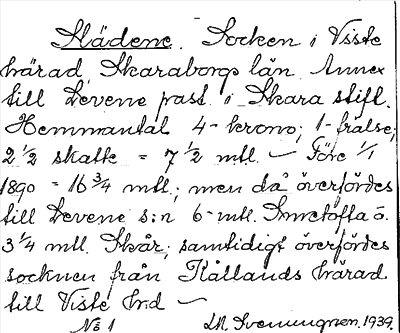 Slädene. Socken i Viste
härad, Skaraborgs län. Annex
till Levene past. i Skara stift.
Hemmantal 4 - krono; 1 - frälse;
2 1/2 skatte = 7 1/2 mtl. — Före 1/1
1890 = 16 3/4 mtl.; men då överfördes
till Levene s:n 6 - mtl. Smetofta o.
3 1/4 mtl. Skår; samtidigt överfördes
socknen från Kållands härad
till Viste h:d —
No 1 LM. Svenungsson. 1939.